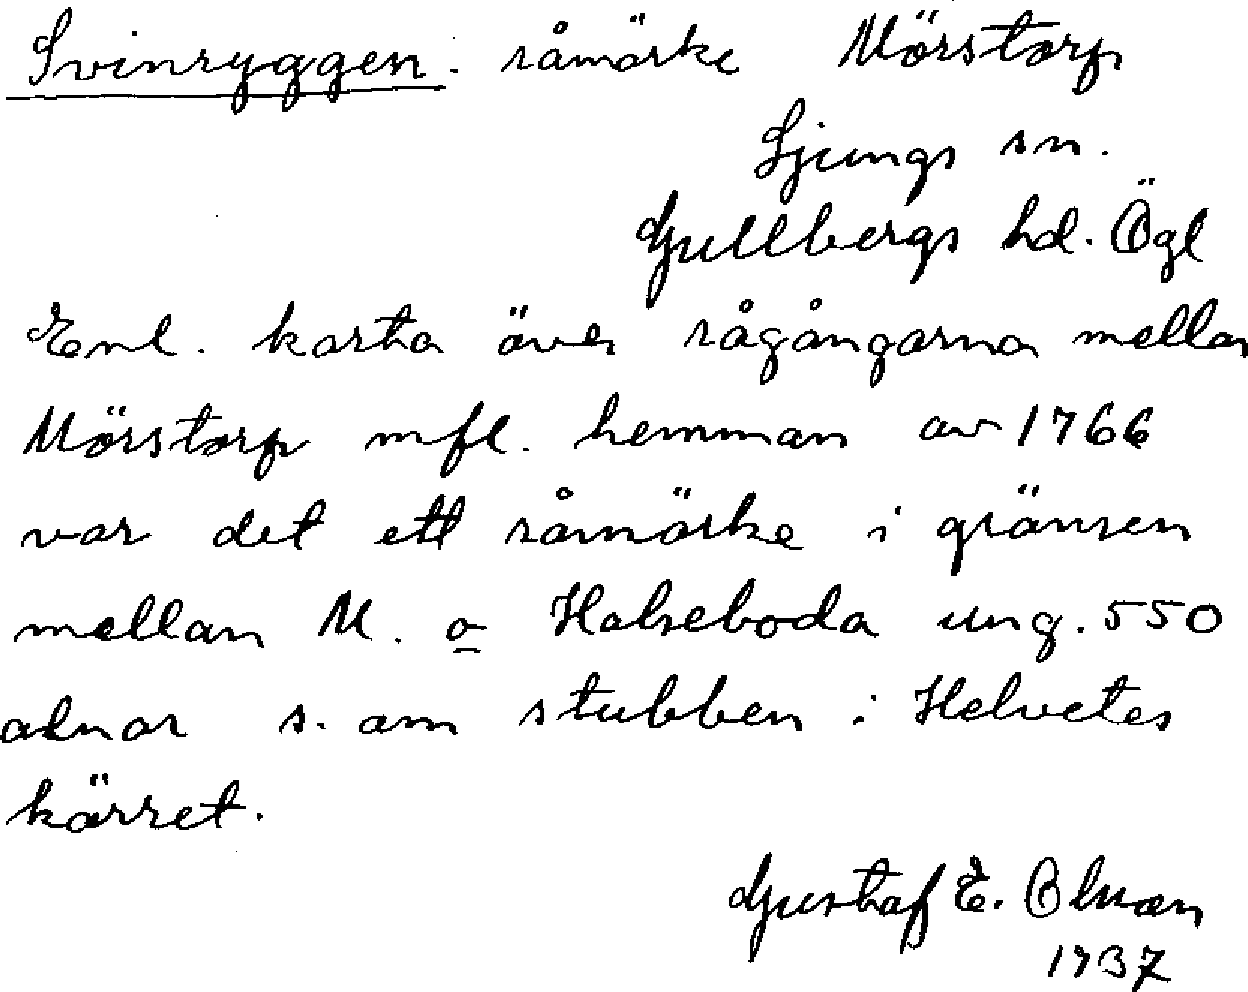 Svinryggen. råmärke Mörstorp
Ljungs sn.
Gullbergs hd. Ögl
Enl. karta över rågångarna mellan
Mörstorp mfl. hemman av 1766
var det ett råmärke i gränsen
mellan M. o Halseboda ung. 550
alnar s. om stubben i Helvetes
kärret.
Gustaf E. Olson
1937